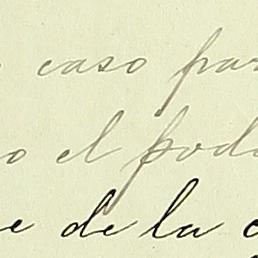 caso par
o el pod
e de la c